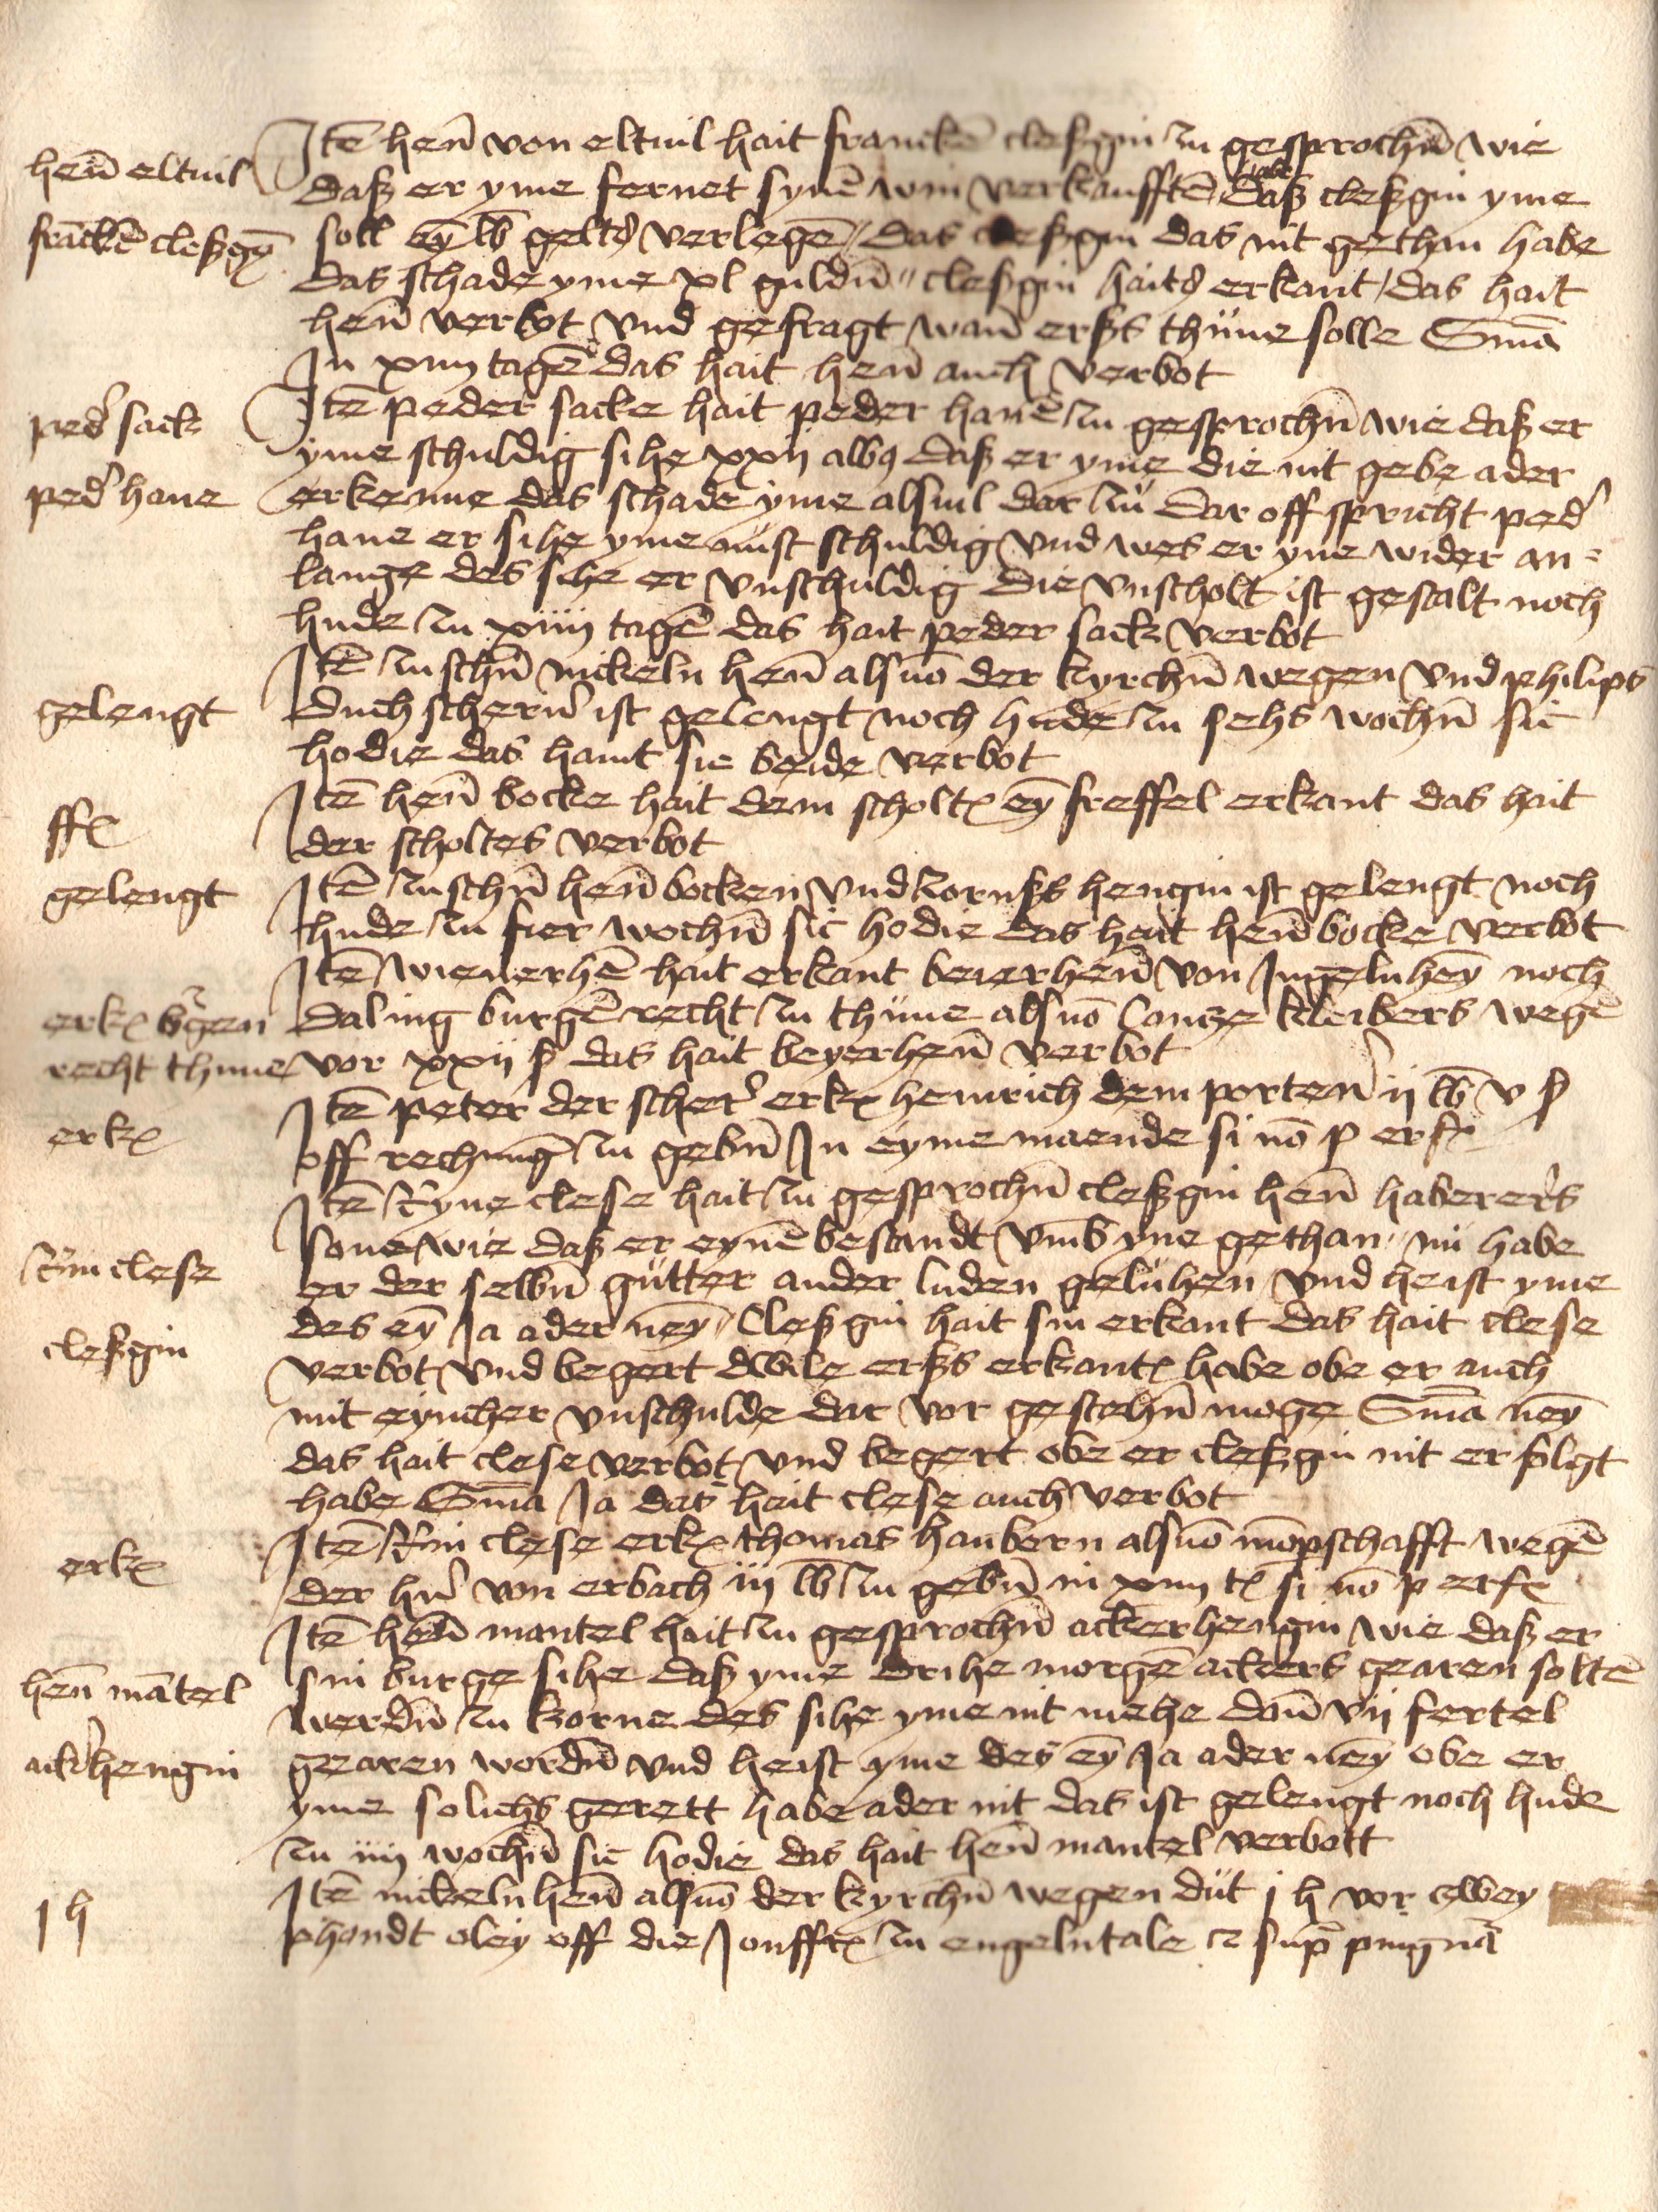 henn̄ eltuil
francken̄ cleßgin̄
Itē henn̄ von eltuil hait franckē cleßgin zu gesprochn̄ wie
daß er yme fernet synē win verkaufftē habe daß cleßgin yme
soll eȳ lb geltꝫ verlegē / das cleßgin das nit gethan habe
das schade yme xl guldn̄ // cleßgin haitꝫ erkant / das hait
henn̄ verbot vnd gefragt wan̄ erßs thüne solle Smā
In xiiij tagē das hait henn̄ auch verbot
ped' sack
ped' hane
Itē peder sacke hait peder hanē zu gesprochn̄ wie daß er
yme schuldig sihe xxij albꝯ daß er yme die nit gebe ader
erkenne das schade yme alsuil dar zu Dar off spricht ped'
hane er sihe yme nust schuldig vnd wes er yne wider an=
lange des sihe er vnschuldig Die vnscholt ist gestalt noch
hude zu xiiij tagē das hait peder sack verbot
gelengt
Itē zuschn̄ nickeln henn̄ alsuō der kyrchn̄ wegen vnd philips
duchschern' ist gelengt noch hude zu sehs wochn̄ sic
hodie das haint sie beide verbot
ff
Itē henn̄ bocke hait dem scholt eȳ freffel erkant das hait
der scholtes verbot
gelengt
Itē zuschn̄ henn̄ bocken vnd zornßs hengin ist gelengt noch
hude zu fier wochn̄ sic hodie das hait henn̄ bocke verbot
erk burgen
recht thune
Itē wienerhē hait erkant beierhenn̄ von Ingelnheȳ noch
daling burgē recht zu thüne alsuō Contze kleibers wegē
vor xxii ß das hait beyerhenn̄ verbot
erk
Itē peter der scher' erk heinrich dem porten' ij lb v ß
off rechnūg zu gebn̄ In eyme maende si nō p erf
Ryn clese
cleßgin
Itē Ryne clese hait zu gesprochn̄ cleßgin henn̄ haberers
sone wie daß er eynē bestandt vmb yne gethan // nü habe
er der selbn̄ gütter ander luden geluhen vnd heist yme
des eȳ Ja ader neȳ // Cleßgin hait sin erkant das hait clese
verbot vnd begert dwile erßs erkant habe obe er auch
mit eyncher vnschulde dar vor gestehn̄ moge Smā neȳ
das hait clese verbot vnd begert obe er cleßgin nit erfolgt
habe Smā Ja das hait clese auch verbot
erk
Itē Ryn clese erk thomas haubern alsuō mōpschafft wegē
der hn' von erbach iij lb zu gebn̄ in xiiij t si nō p erf
henn̄ mātel
ack'hengin
Itē henn̄ mantel hait zu gesprochn̄ ackerhengin wie daß er
sin burge sihe daß yme drihe morgē ackers gearen soltē
werdn̄ zu korne des sihe yme nit mehe dan̄ vij fertel
gearen wordn̄ vnd heist yme des eȳ Ja ader neȳ obe er
yme solichs gerett habe ader nit das ist gelengt noch hude
zu iiij wochn̄ sic hodie das hait henn̄ mantel verbott
j h
Itē nickeln henn̄ alsuō der kyrchn̄ wegen düt j h vor czwey
phondt oley off die Jonffr zu engelntale ꝛ sup pingnā